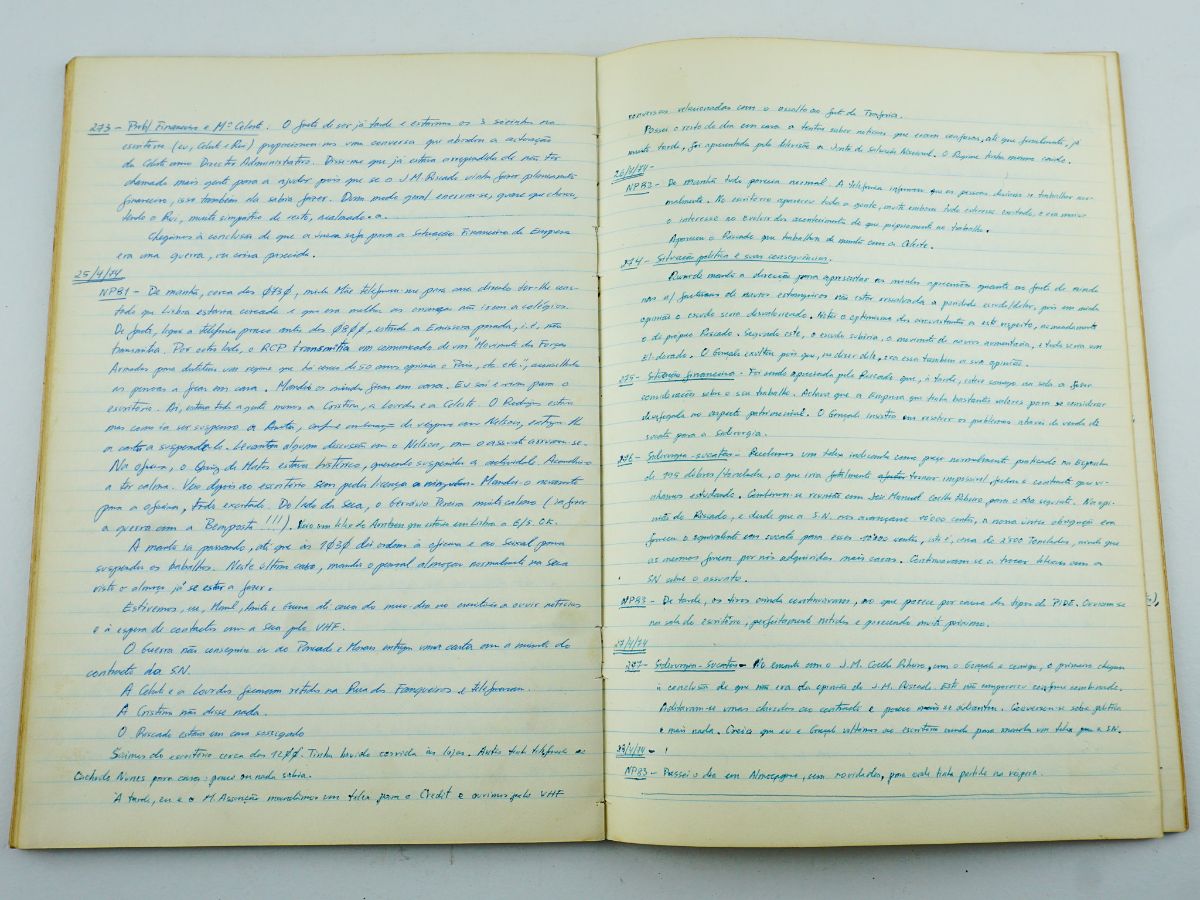 273 - Probl Financeiro e Mª Celeste: O facto de ser já tarde e estarmos os 3 sòzinhos no
escritório (eu, Celeste e Rui) proporcionou-nos uma conversa que abordou a actuação
da Celeste como Director Administrativo. Disse-me que já estava arrependida de não ter
chamado mais gente para a ajudar pois que se o J.M. Piscado vinha fazer planeamento
financeiro, isso também ela sabia fazer. Dum modo geral enervou-se, quase que chorou,
tendo o Rui, muito simpático de resto, acalmado-a.
Chegámos à conclusão de que a nossa safa para a Situação Financeira da Empresa
era uma guerra, ou coisa parecida.
25/4/74
NP81 - De manhã, cerca das 0730, minha Mãe telefonou-me para casa dizendo ter-lhe cons-
tado que Lisboa estava cercada e que era melhor as crianças não irem a colégios.
De facto, liguei a telefonia pouco antes das 0800, estando a Emissora parada, i.e., não
transmitia. Por outro lado, o RCP transmitia um comunicado de um "Movimento das Forças
Armadas para debelar um regime que há cerca de 50 anos oprimia o País, etc etc", aconselhando
as pessoas a ficar em casa. Mandei os miúdos ficar em casa. Eu saí e vim para o
escritório. Aí, estava toda a gente menos a Cristina, a Lourdes e a Celeste. O Rodrigues estava
mas como ia ser suspenso o Anita, conf. combinação de véspera com Nelson, entregou-lhe
a carta a suspendê-lo. Levantou alguma discussão com o Nelson, mas o assunto arrumou-se.
Na oficina, o Gariz de Matos estava histérico, querendo suspender a actividade. Aconselhei-o
a ter calma. Veio depois ao escritório sem pedir licença a ninguém. Mandei-o novamente
para a oficina, todo excitado. Do lado da seca, o Gervásio Pereira muito calmo (ia fazer
a guerra com a Bemposta!!!). Veio um telex do Amsteen que estava em Lisboa a E/S. OK.
A manhã ia passando, até que às 1030 dei ordem à oficina e ao Seixal para
suspender os trabalhos. Neste último caso, mandei o pessoal almoçar normalmente na seca
visto o almoço já se estar a fazer.
Estivemos, eu, Manl, Aniti e Guerra até cerca do meio-dia no escritório a ouvir notícias
e à espera de contactos com a seca pelo VHF.
O Guerra não conseguiu ir ao Piscado e Morais entregar uma carta com a minuta do
contracto da SN.
A Celeste e a Lourdes ficaram retidas na Rua dos Fanqueiros e telefonaram.
A Cristina não disse nada.
O Piscado estava em casa sossegado
Saímos do escritório cerca das 1200. Tinha havido corrida às lojas. Antes tinha telefonado ao
Cachudo Nunes para casa: pouco ou nada sabia.
À tarde, eu e o M. Assunção mandámos um telex para o Credit e ouvimos pelo VHF
conversas relacionadas com o assalto ao forte da Trafaria.
Passei o resto do dia em casa a tentar saber notícias que eram confusas, até que finalmente, já
muito tarde, foi apresentada pela televisão a Junta de Salvação Nacional. O Regime tinha mesmo caído.
26/4/74
NP82 - De manhã tudo parecia normal. A telefonia informou que as pessoas deviam ir trabalhar nor-
malmente. No escritório apareceu toda a gente, muito embora tudo estivesse excitado, e era maior
o interesse no evoluir dos acontecimentos do que pròpriamente no trabalho.
Apareceu o Piscado que trabalhou de manhã com a Celeste.
274 - Situação política e suas consequências.
Reuni de manhã a direcção para apresentar as minhas apreensões quanto ao facto de ainda
nas n/ facturas de navios estrangeiros não estar resolvida a paridade escudo/dolar, pois em minha
opinião o escudo seria desvalorizado. Notei o optimismo dos circunstantes a este respeito, nomeadamente
o do próprio Piscado. Segundo este, o escudo subiria, o movimento de navios aumentaria, e tudo seria um
El-dorado. O Gonçalo exultou pois que, no dizer dele, era essa também a sua opinião.
275 - Situação financeira - Foi sendo apreciada pelo Piscado que, à tarde, esteve comigo na sala a fazer
considerações sobre o seu trabalho. Achava que a Empresa que tinha bastantes valores para se considerar
desafogada no aspecto patrimonial. O Gonçalo insistiu em resolver os problemas através da venda de
sucata para a Siderurgia.
276 - Siderurgia-sucatas - Recebemos um telex indicando como preço normalmente praticado na Espanha
de 114 dólares/tonelada, o que iria fatalmente tornar impossível fechar o contracto que vi-
nhamos estudando. Combinou-se reunião com José Manuel Coelho Ribeiro para o dia seguinte. Na opi-
nião do Piscado, e desde que a S.N. nos avançasse 10000 contos, a nossa única obrigação era
fornecer o equivalente em sucata para esses 10000 contos, isto é, cerca de 2500 Toneladas, ainda que
as mesmas fossem por nós adquiridas mais caras. Continuaram-se a trocar telexes com a
SN sobre o assunto.
NP83 - De tarde, os tiros ainda continuavam, ao que parece por causa dos tipos da PIDE. Ouviam-se
na sala do escritório, perfeitamente nítidos e parecendo muito próximo.
27/4/74
277 - Siderurgia-Sucatas - No encontro com o J.M. Coelho Ribeiro, com o Gonçalo e comigo, o primeiro chegou
à conclusão de que não era da opinião do J.M. Piscado. Este não compareceu conforme combinado.
Aditaram-se umas cláusulas ao contrato e pouco mais se adiantou. Conversou-se sobre política
e mais nada. Creio que eu e Gonçalo voltámos ao escritório ainda para mandar um telex para a SN.
28/4/74 -
NP83 - Passei o dia em Almoçageme, sem novidades, para onde tinha partido na véspera.